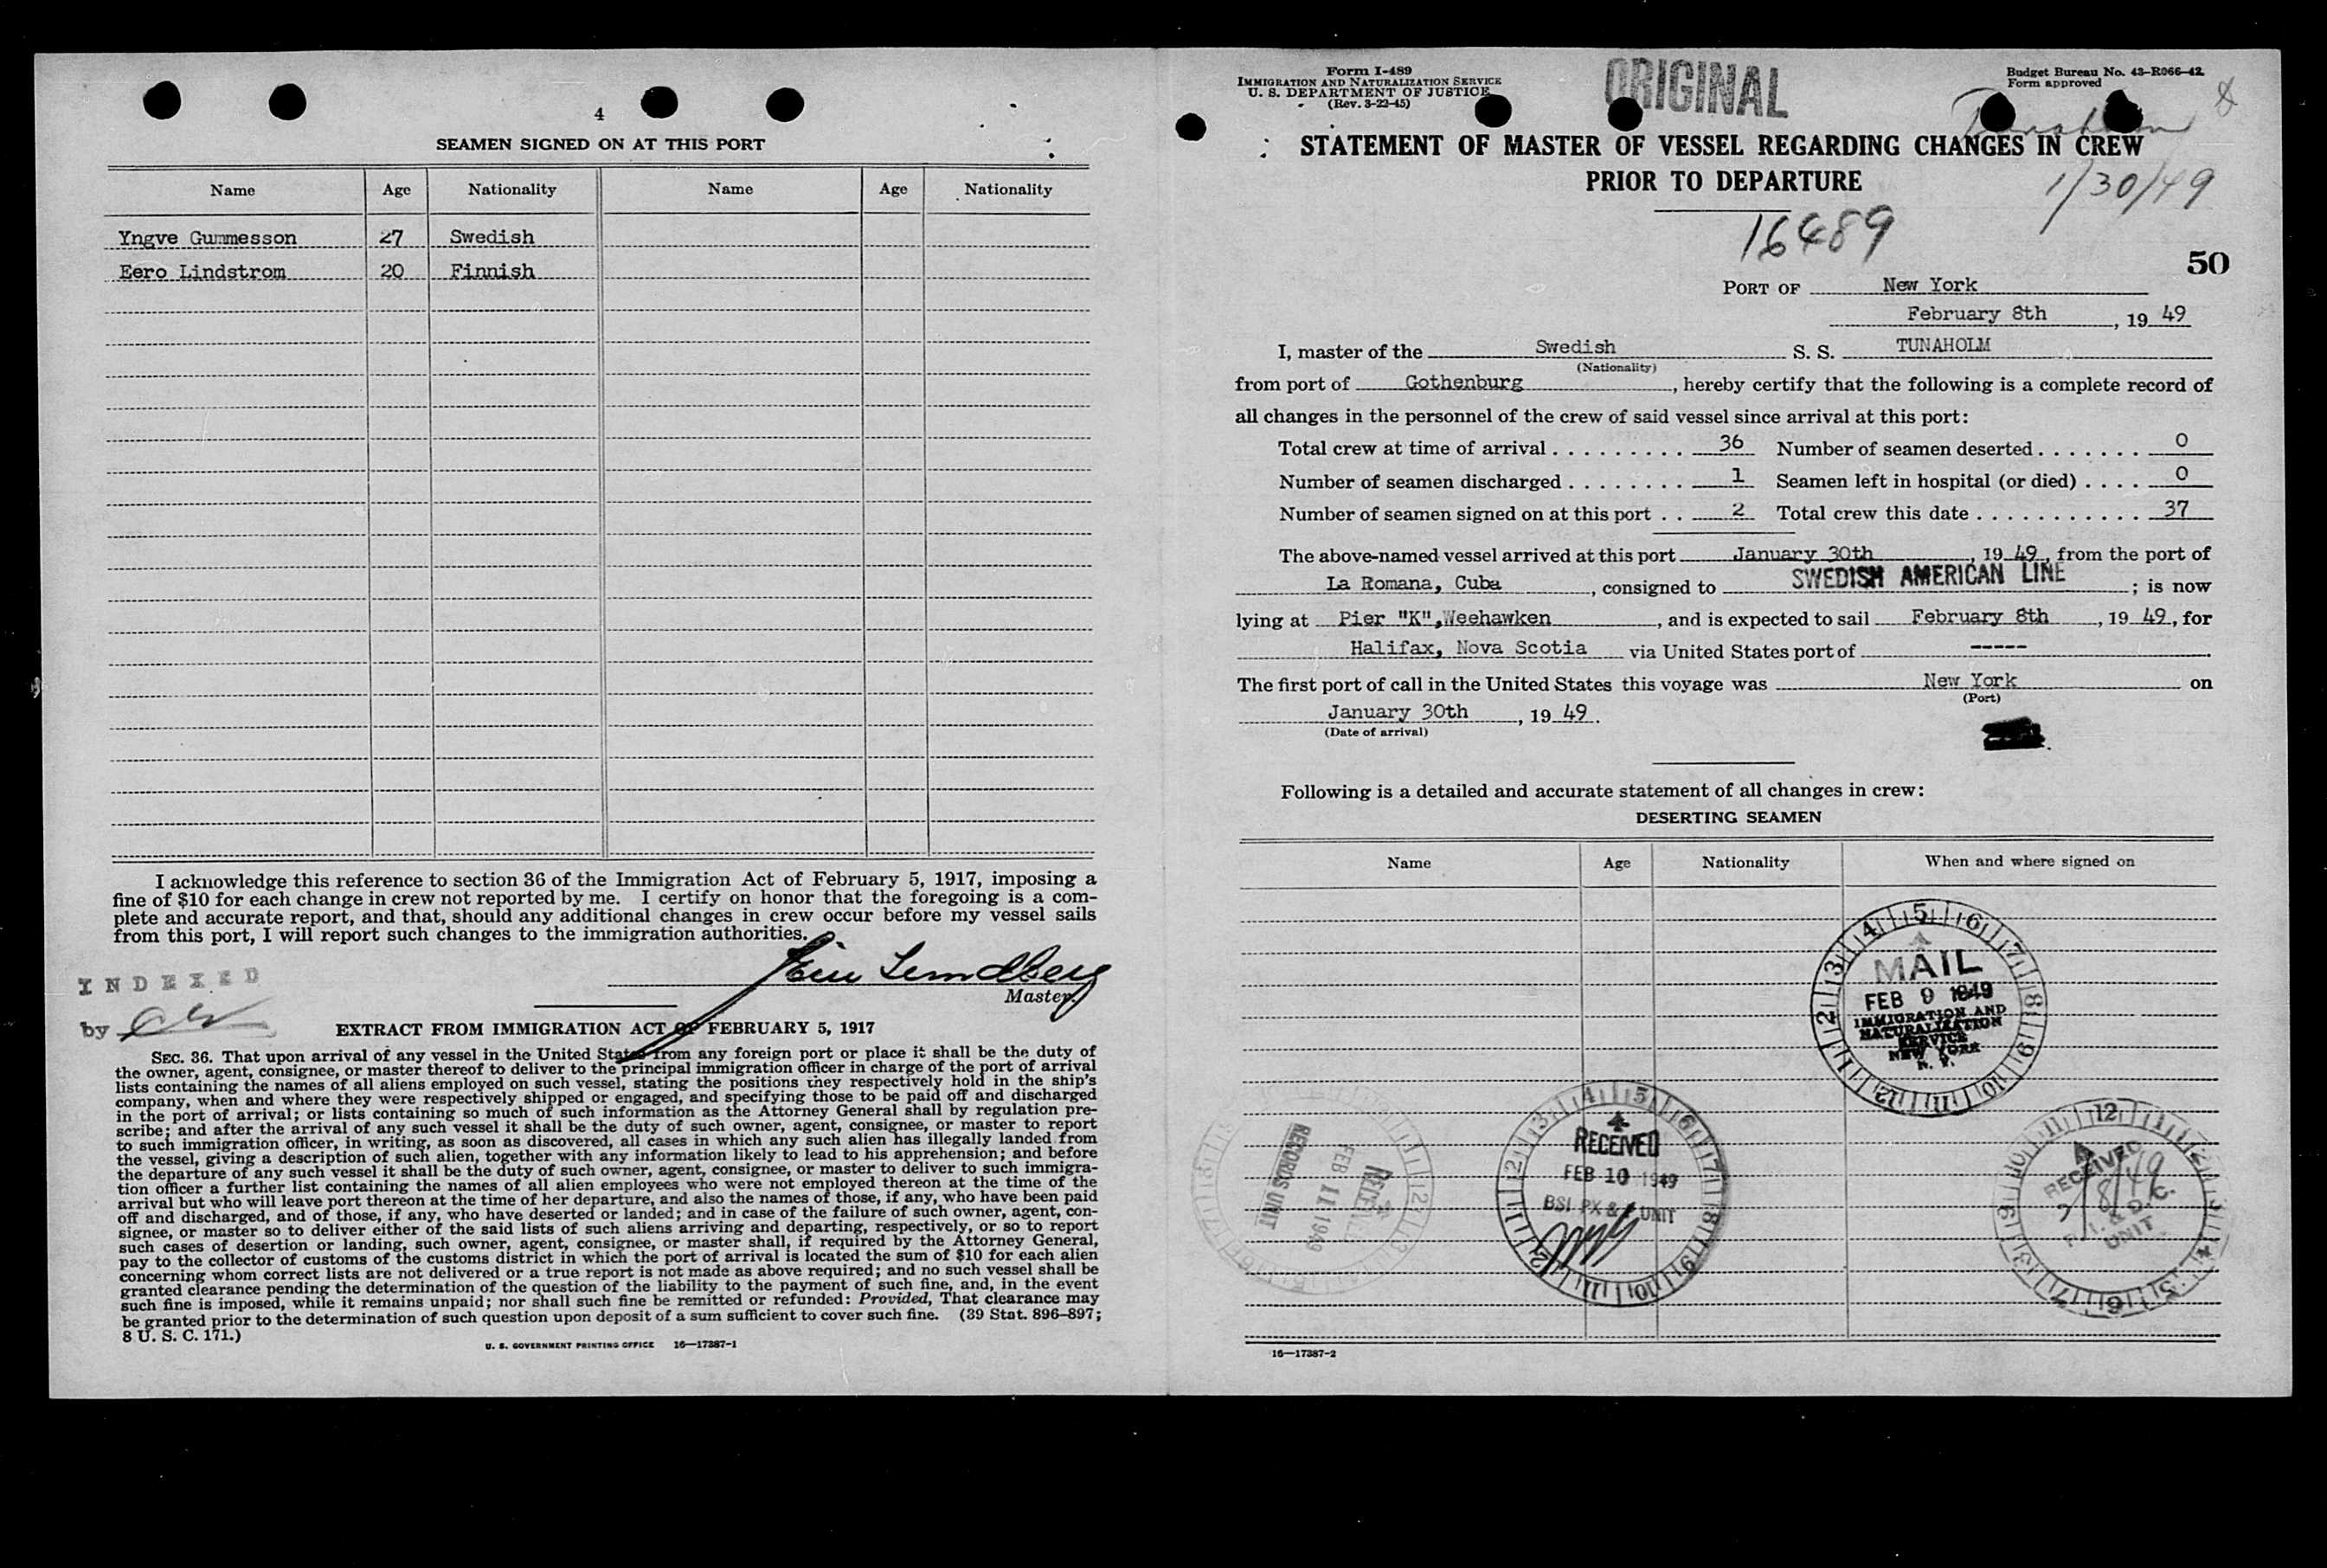 4
SEAMEN SIGNED ON AT THIS PORT
Name Age Nationality Name Age Nationality
Yngve Gummesson 27 Swedish
Eero Lindstrom 20 Finnish
I acknowledge this reference to section 36 of the Immigration Act of February 5, 1917, imposing a
fine of $10 for each change in crew not reported by me. I certify on honor that the foregoing is a com-
plete and accurate report, and that, should any additional changes in crew occur before my vessel sails
from this port, I will report such changes to the immigration authorities.
Lundberg
Master.
INDEXED
by
EXTRACT FROM IMMIGRATION ACT OF FEBRUARY 5, 1917
SEC. 36. That upon arrival of any vessel in the United States from any foreign port or place it shall be the duty of
the owner, agent, consignee, or master thereof to deliver to the principal immigration officer in charge of the port of arrival
lists containing the names of all aliens employed on such vessel, stating the positions they respectively hold in the ship's
company, when and where they were respectively shipped or engaged, and specifying those to be paid off and discharged
in the port of arrival; or lists containing so much of such information as the Attorney General shall by regulation pre-
scribe; and after the arrival of any such vessel it shall be the duty of such owner, agent, consignee, or master to report
to such immigration officer, in writing, as soon as discovered, all cases in which any such alien has illegally landed from
the vessel, giving a description of such alien, together with any information likely to lead to his apprehension; and before
the departure of any such vessel it shall be the duty of such owner, agent, consignee, or master to deliver to such immigra-
tion officer a further list containing the names of all alien employees who were not employed thereon at the time of the
arrival but who will leave port thereon at the time of her departure, and also the names of those, if any, who have been paid
off and discharged, and of those, if any, who have deserted or landed; and in case of the failure of such owner, agent, con-
signee, or master so to deliver either of the said lists of such aliens arriving and departing, respectively, or so to report
such cases of desertion or landing, such owner, agent, consignee, or master shall, if required by the Attorney General,
pay to the collector of customs of the customs district in which the port of arrival is located the sum of $10 for each alien
concerning whom correct lists are not delivered or a true report is not made as above required; and no such vessel shall be
granted clearance pending the determination of the question of the liability to the payment of such fine, and, in the event
such fine is imposed, while it remains unpaid; nor shall such fine be remitted or refunded: Provided, That clearance may
be granted prior to the determination of such question upon deposit of a sum sufficient to cover such fine. (39 Stat. 896-897;
8 U. S. C. 171.)
U. S. GOVERNMENT PRINTING OFFICE 16—17387-1
Form I-489
IMMIGRATION AND NATURALIZATION SERVICE
U. S. DEPARTMENT OF JUSTICE
(Rev. 3-22-45)
ORIGINAL
Budget Bureau No. 43-R066-42
Form approved
Tunaholm
STATEMENT OF MASTER OF VESSEL REGARDING CHANGES IN CREW
PRIOR TO DEPARTURE
1/30/49
16489
50
PORT OF New York
February 8th, 19 49
I, master of the Swedish S. S. TUNAHOLM
(Nationality)
from port of Gothenburg, hereby certify that the following is a complete record of
all changes in the personnel of the crew of said vessel since arrival at this port:
Total crew at time of arrival . . . . . . . . . 36 Number of seamen deserted . . . . . . . 0
Number of seamen discharged . . . . . . . . 1 Seamen left in hospital (or died) . . . . 0
Number of seamen signed on at this port . . 2 Total crew this date . . . . . . . . . . . . 37
The above-named vessel arrived at this port January 30th, 19 49, from the port of
La Romana, Cuba, consigned to SWEDISH AMERICAN LINE; is now
lying at Pier "K",Weehawken, and is expected to sail February 8th, 19 49, for
Halifax, Nova Scotia via United States port of -----.
The first port of call in the United States this voyage was New York on
(Port)
January 30th, 19 49.
(Date of arrival)
Following is a detailed and accurate statement of all changes in crew:
DESERTING SEAMEN
Name Age Nationality When and where signed on
MAIL
FEB 9 1949
IMMIGRATION AND
NATURALIZATION
SERVICE
NEW YORK
N. Y.
RECEIVED
FEB 11 1949
RECORDS UNIT
RECEIVED
FEB 10 1949
BSI PX & UNIT
RECEIVED
2/8/49
UNIT
16—17387-2